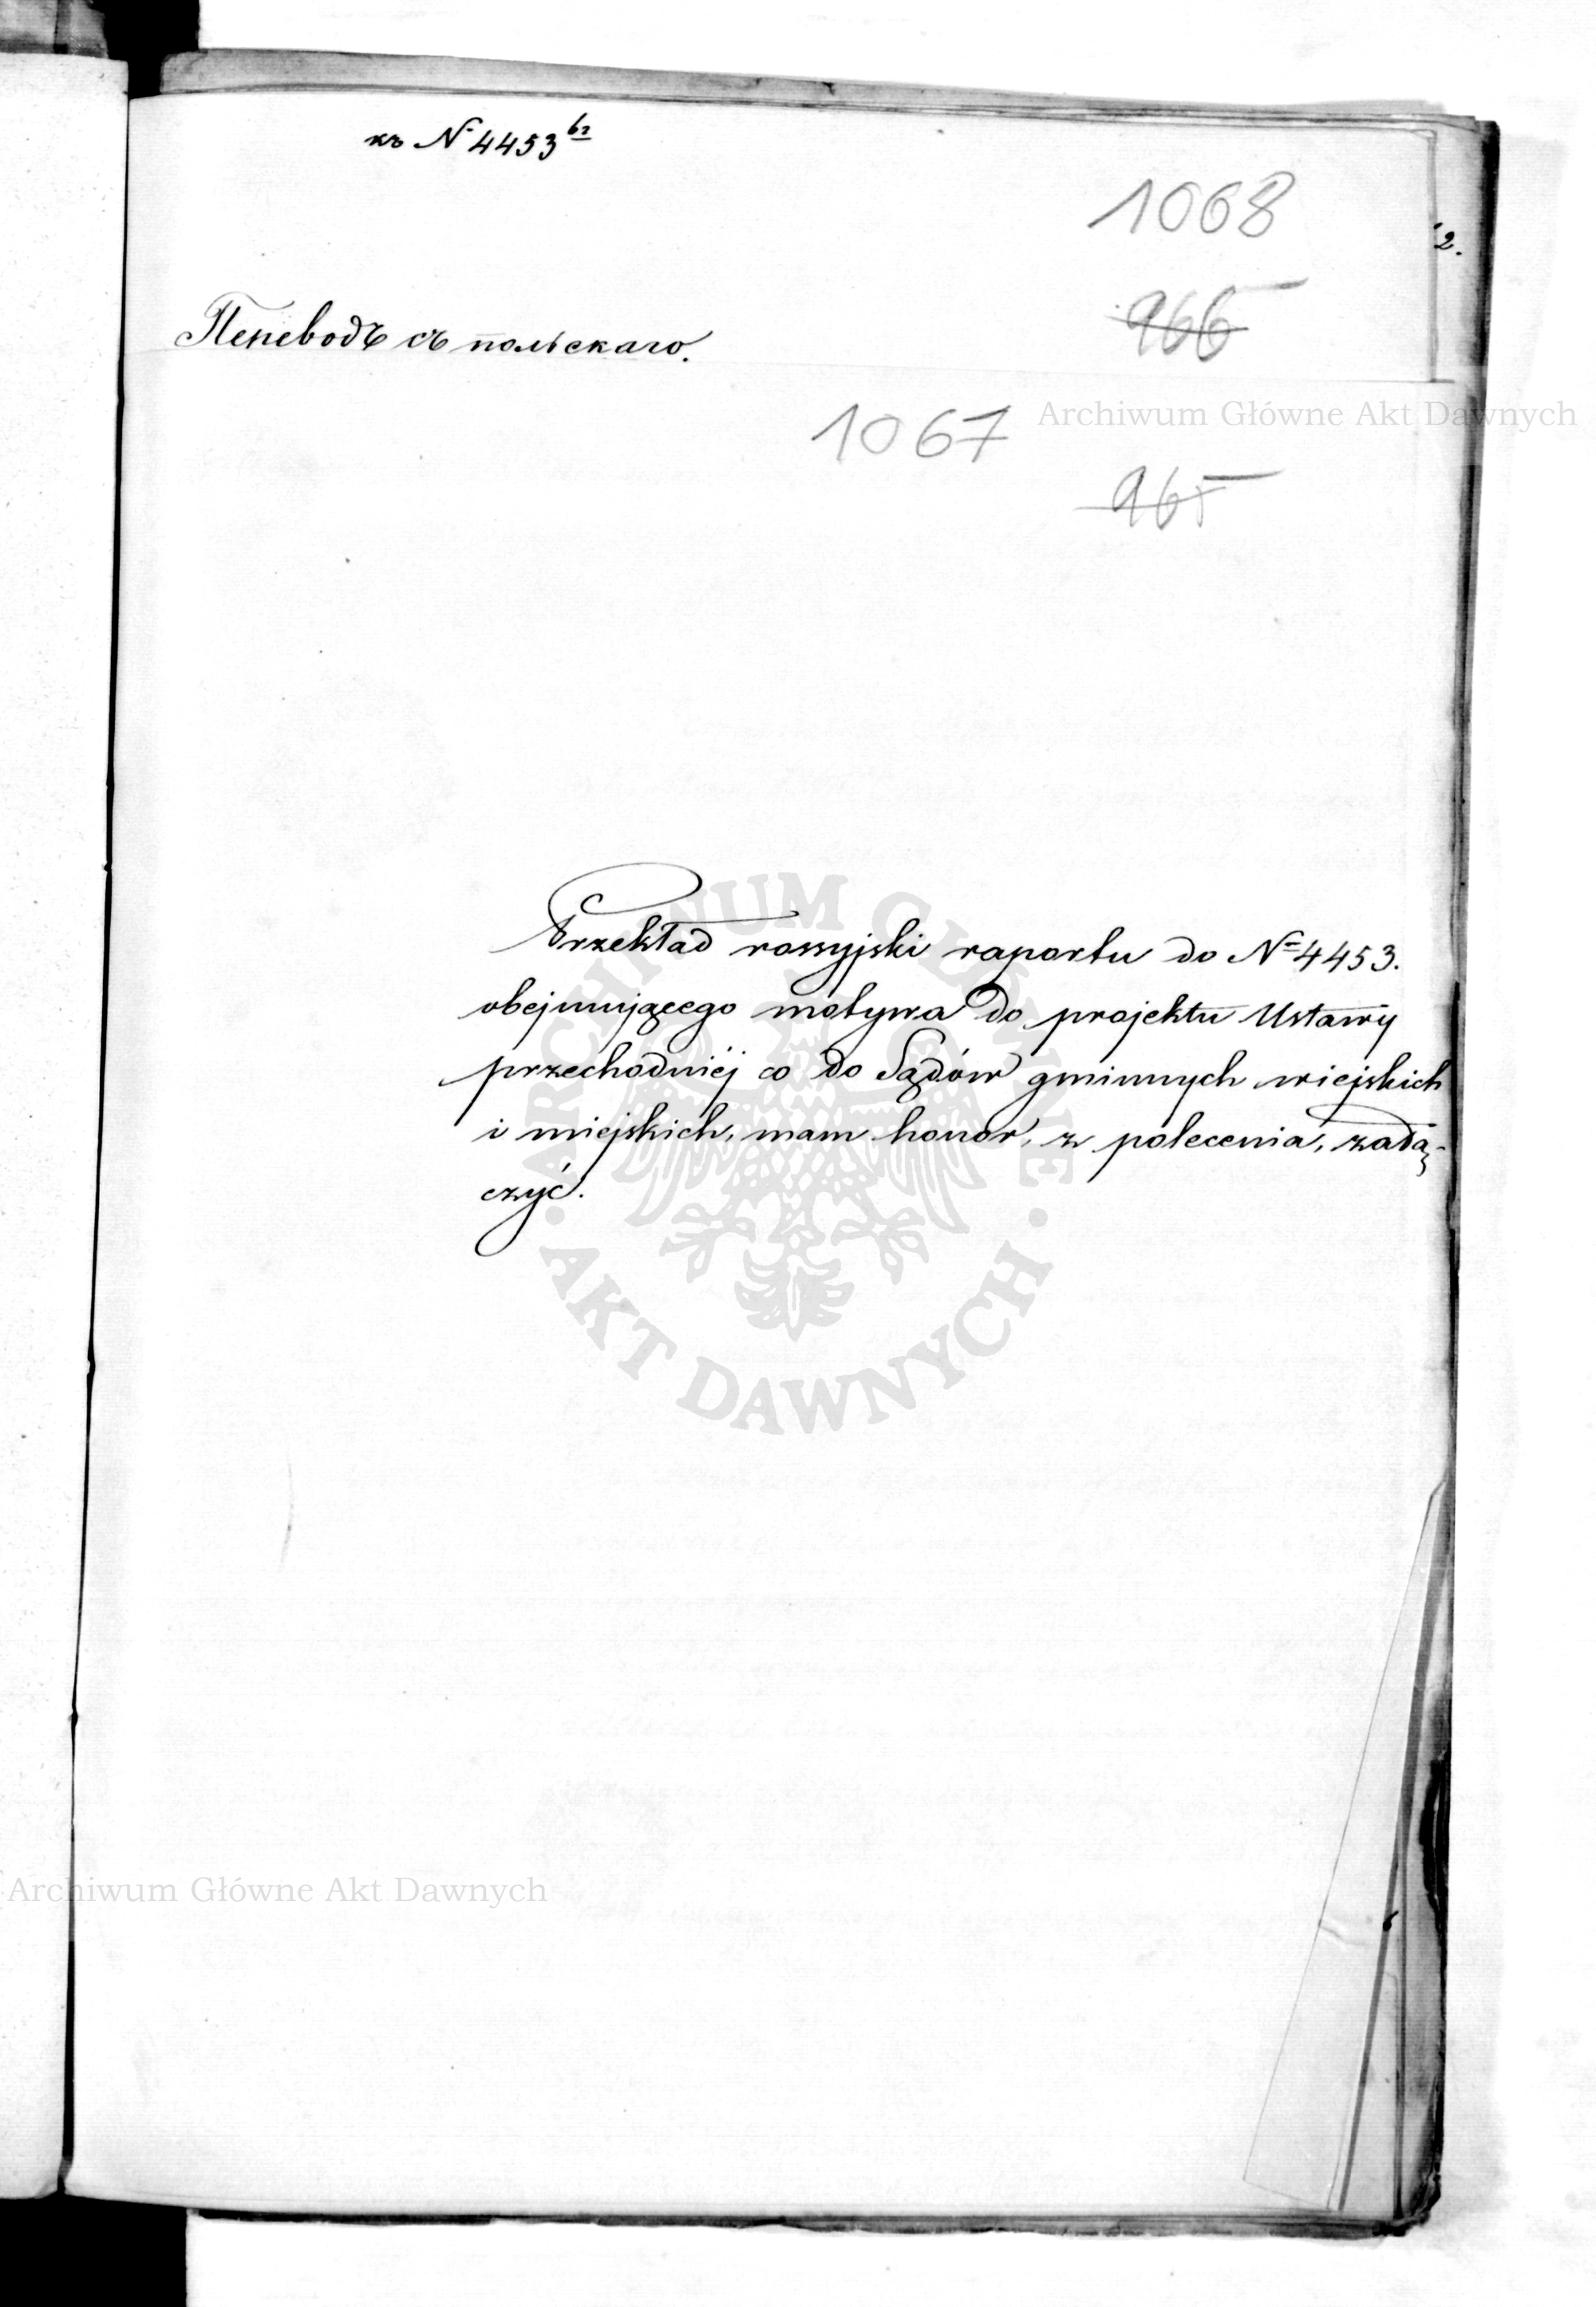 къ № 4453
1068
2.
966
Переводъ съ польскаго.
Archiwum Główne Akt Dawnych
1067
965
Przekład rossyjski raportu do № 4453.
obejmującego motywa do projektu Ustawy
przechodniéj co do Sądów gminnych wiejskich
i miejskich, mam honor, z polecenia, załą-
czyć.
ARCHIWUM GŁÓWNE
· AKT DAWNYCH ·
Archiwum Główne Akt Dawnych